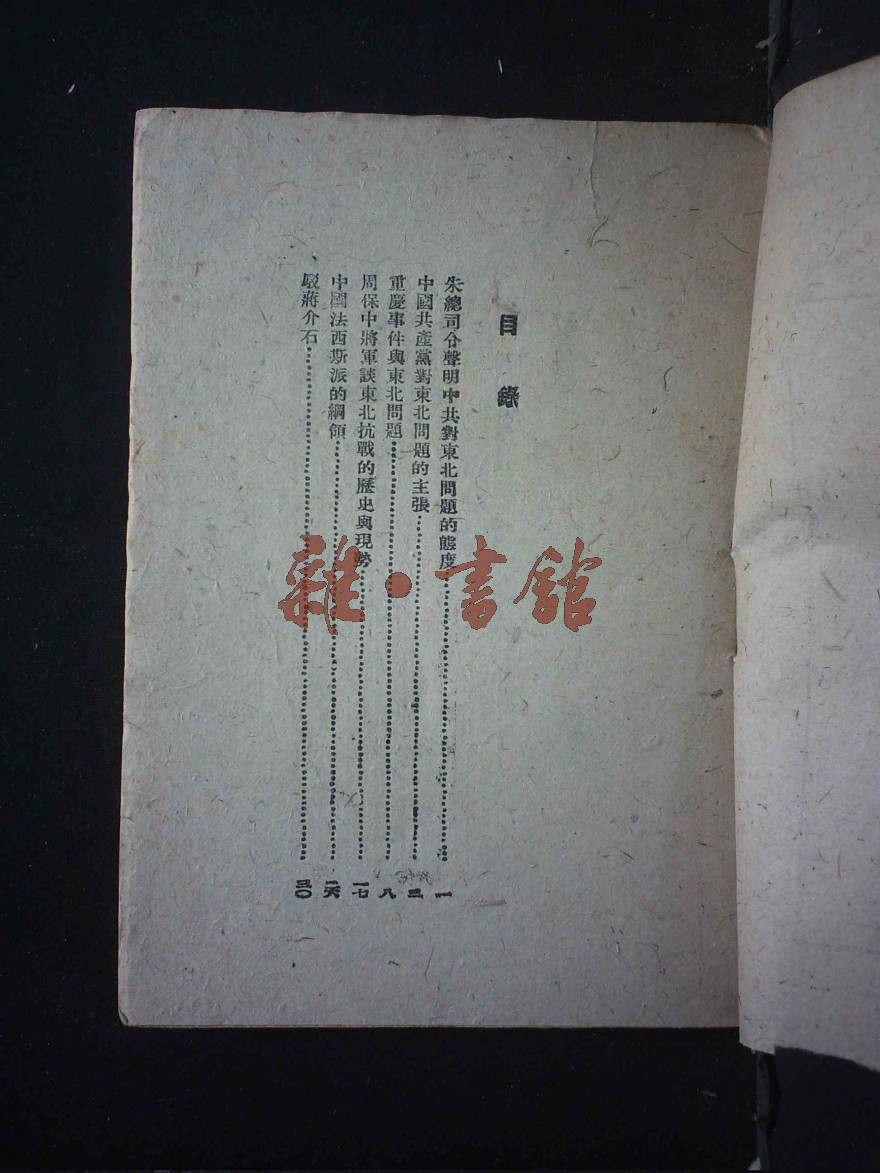 目錄
朱總司令聲明中共對東北問題的態度……一
中國共產黨對東北問題的主張……三
重慶事件與東北問題……八
周保中將軍談東北抗戰的歷史與現勢……一七
中國法西斯派的綱領……二六
駁蔣介石……三〇
雜·書館